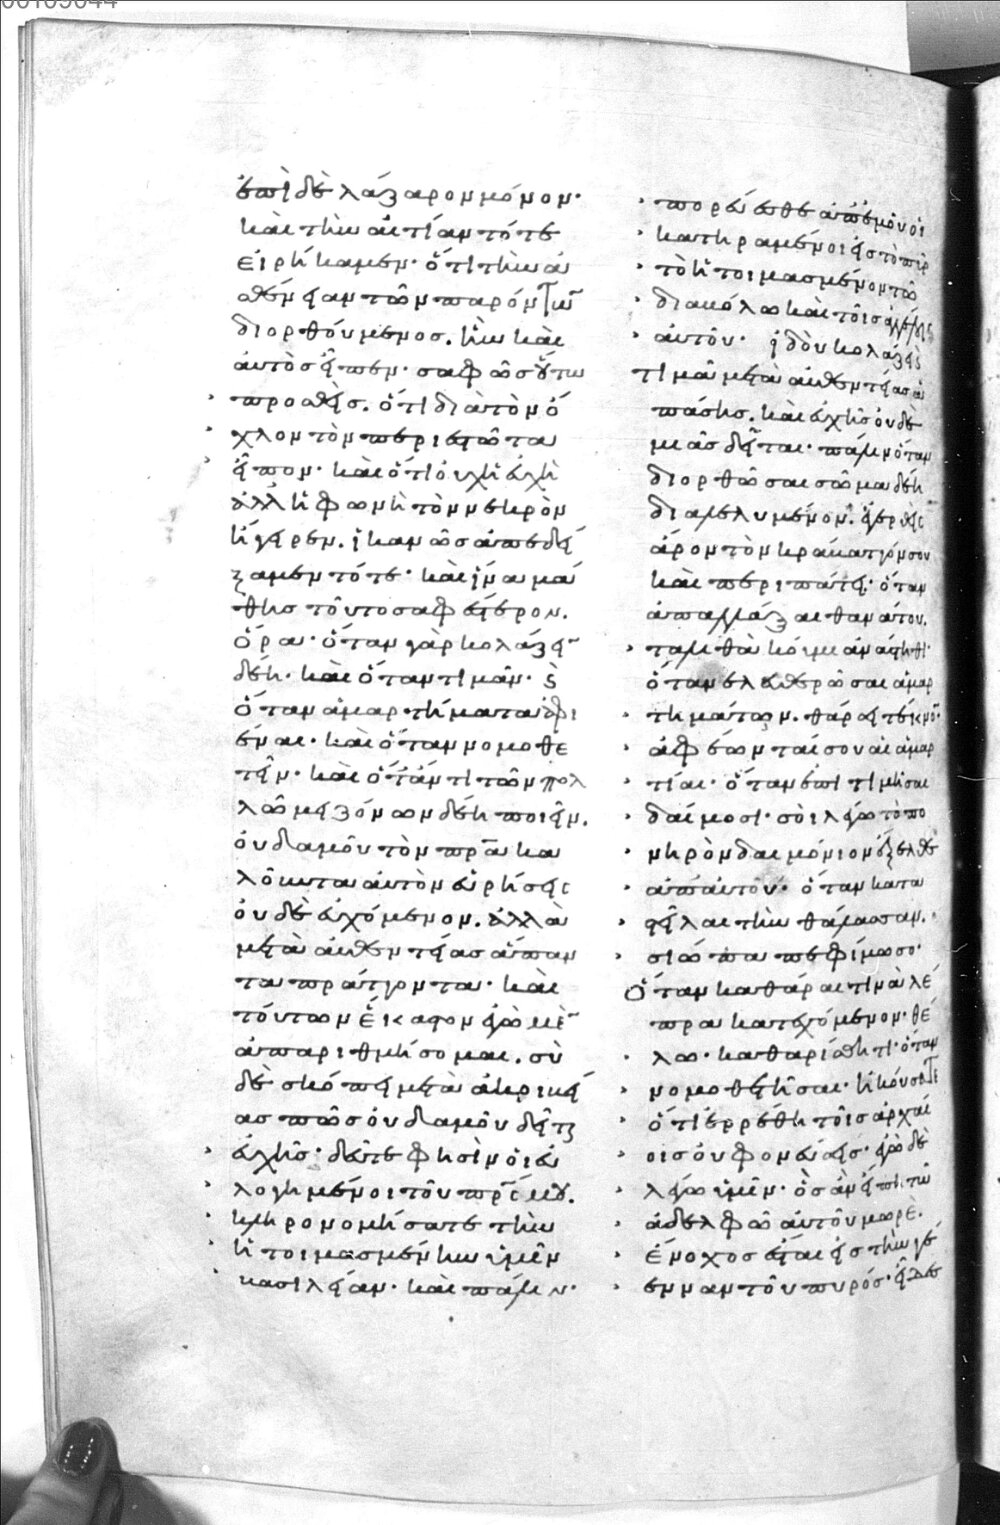 ἐπὶ δὲ λάζαρον μόνον·
καὶ τὴν αἰτίαν τότε
εἰρήκαμεν· ὅτι τὴν ἀ
σθένειαν τῶν παρόντων
διορθούμενος. ἣν καὶ
αὐτὸς εἶπεν· σαφῶς οὕτω
προσθεὶς. ὅτι διὰ τὸν ὄ
χλον τὸν περιεστῶτα
εἶπον· καὶ ὅτι οὐχ ἡ εὐχὴ
ἀλλ ἡ φωνὴ τὸν νεκρὸν
ἤγειρεν. ἱκανῶς ἀπεδεί
ξαμεν τότε· καὶ ἵνα μά
θῃς τοῦτο σαφέστερον.
ὅρα· ὅταν γὰρ κολάζειν
δέῃ· καὶ ὅταν τιμᾶν· καὶ
ὅταν ἁμαρτήματα ἀφι
έναι· καὶ ὅταν νομοθε
τεῖν· καὶ ὅταν τι τῶν πολ
λῶ μειζόνων δέῃ ποιεῖν.
οὐδαμοῦ τὸν πρα κα
λοῦντα αὐτὸν εὑρήσεις
οὐδὲ εὐχόμενον. ἀλλὰ
μετὰ αὐθεντείας ἅπαν
τα πράττοντα· καὶ
τούτων ἕκαστον ἐγὼ μὲν
ἀπαριθμήσομαι. σὺ
δὲ σκόπει μετὰ ἀκριβεί
ας πῶς οὐδαμοῦ δεῖται
εὐχῆς· δεῦτε φησὶν οἱ εὐ
λογημένοι τοῦ πρς μου.
κληρονομήσατε τὴν
ἡτοιμασμένην ὑμῖν
βασιλείαν· καὶ πάλιν·
πορεύεσθε ἀπ ἐμοῦ οἱ
κατηραμένοι εἰς τὸ πῦρ
τὸ ἡτοιμασμένον τῶ
διαβόλω καὶ τοῖς ἀγγέλοις
αὐτοῦ· ἰδοὺ κολάζει καὶ
τιμᾶ μετὰ αὐθεντείας ἁ
πάσης. καὶ εὐχῆς οὐδὲ
μιᾶς δεῖται· πάλιν ὅταν
διορθῶσαι σῶμα δέῃ
διαλελυμένον. ἔγειρε
ἆρον τὸν κράβαττόν σου
καὶ περιπάτει· ὅταν
ἀπαλλάξαι θανάτου.
ταλιθὰ κούμι ἀνάστηθι·
ὅταν ἐλευθερῶσαι ἁμαρ
τημάτων. θάρσει τέκνον·
ἀφέωνταί σου αἱ ἁμαρ
τίαι· ὅταν ἐπιτιμῆσαι
δαίμοσι· σοὶ λέγω τὸ πο
νηρὸν δαιμόνιον ἔξελθε
ἀπ αὐτοῦ· ὅταν κατα
στεῖλαι τὴν θάλασσαν.
σιώπα πεφίμωσο·
Ὅταν καθάραι τινὰ λέ
πρα κατεχόμενον· θέ
λω· καθαρίσθητι· ὅταν
νομοθετῆσαι· ἠκούσατε
ὅτι ἐρρέθη τοῖς ἀρχαί
οις οὐ φονεύσεις· ἐγὼ δὲ
λέγω ὑμῖν· ὃς ἂν εἴπη τῶ
ἀδελφῶ αὐτοῦ μωρέ.
ἔνοχος ἔσται εἰς τὴν γέ
ενναν τοῦ πυρός· εἶδες